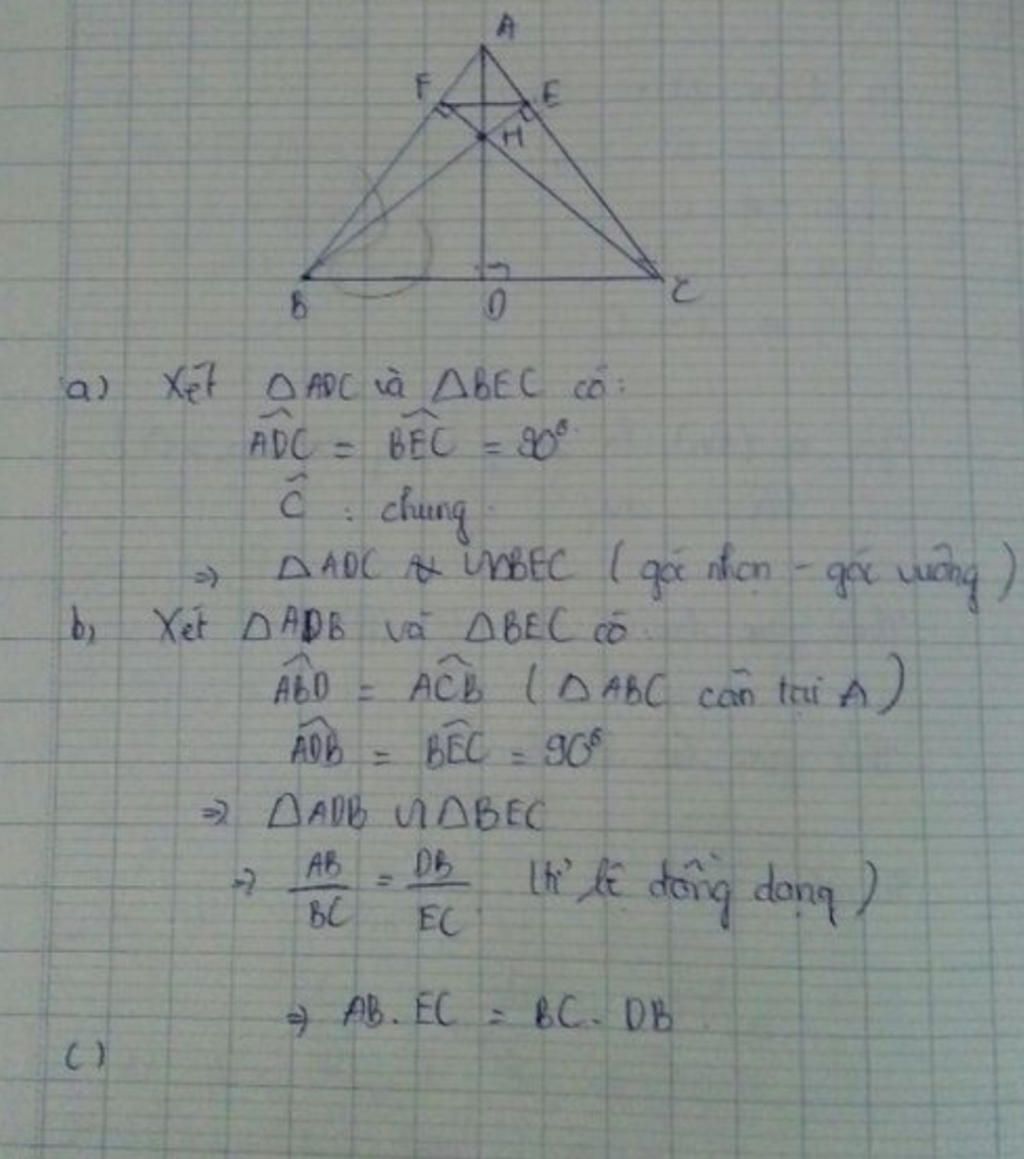 A
F E
H
B D C
a) Xét △ADC và △BEC có:
ADC = BEC = 90°
C : chung
=> △ADC ∽ △BEC (góc nhọn - góc vuông)
b, Xét △ADB và △BEC có
ABD = ACB (△ABC cân tại A)
ADB = BEC = 90°
=> △ADB ∽ △BEC
=> AB/BC = DB/EC (tỉ lệ đồng dạng)
=> AB. EC = BC. DB
c)